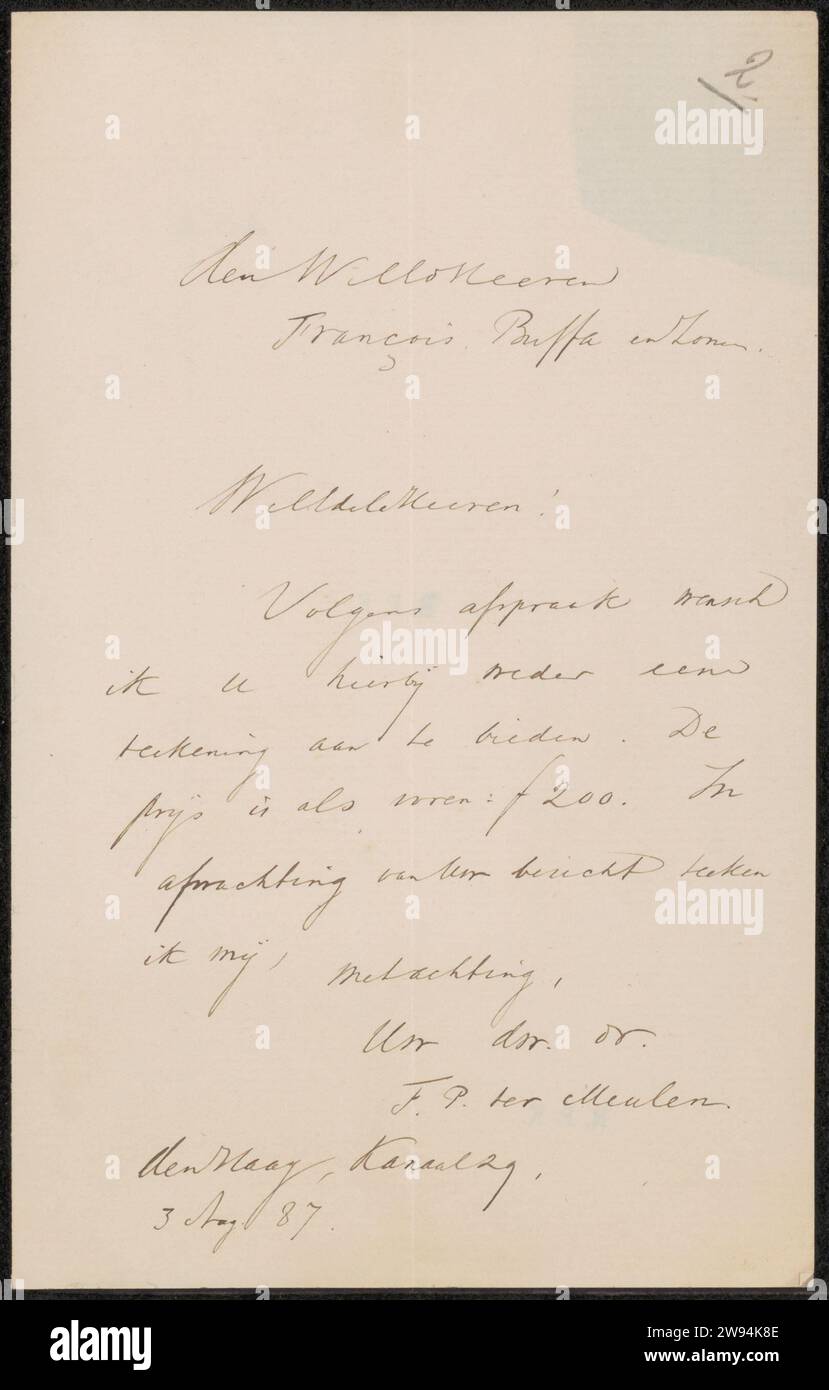 2
den WelEd Heeren
François Buffa en Zonen.
WelEdele Heeren!
Volgens afspraak wensch
ik u hierbij weder eene
teekening aan te bieden. De
prijs is als voren: f 200. In
afwachting van Uw bericht teeken
ik mij,
met achting,
Uw dw. dr.
F. P. ter Meulen.
den Haag, Kanaal 29,
3 Aug 87.
alamy
Image ID: 2W94K8E
www.alamy.com